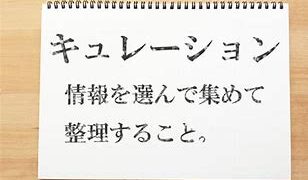 キュレーション
情報を選んで集めて
整理すること。